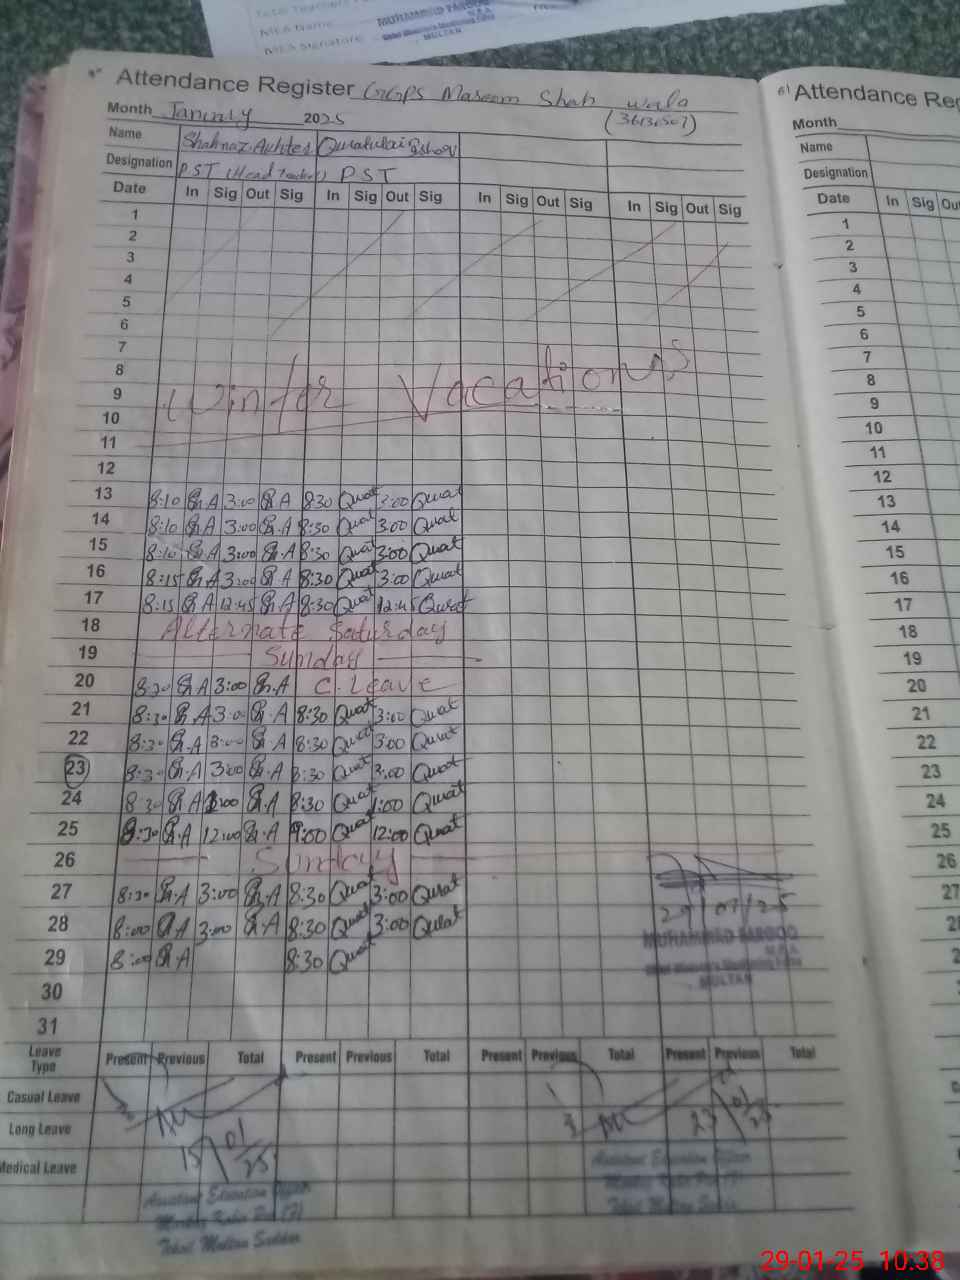 MEA Name
MEA Signature
MUHAMMAD FAROOQ
M.E.A
MULTAN
Attendance Register GGPS Maseem Shah wala
(36131507)
Month January 2025
Name Shahnaz Akhter
Designation PST (Head Teacher) PST
Date In Sig Out Sig In Sig Out Sig In Sig Out Sig In Sig Out Sig
1
2
3
4
5
6
7
8
9 Winter Vacations
10
11
12
13 8:10 Sh.A 3:00 Sh.A 8:30 Qurat 3:00 Qurat
14 8:10 Sh.A 3:00 Sh.A 8:30 Qurat 3:00 Qurat
15 8:10 Sh.A 3:00 Sh.A 8:30 Qurat 3:00 Qurat
16 8:15 Sh.A 3:00 Sh.A 8:30 Qurat 3:00 Qurat
17 8:15 Sh.A 12:45 Sh.A 8:30 Qurat 12:45 Qurat
18 Alternate Saturday
19 Sunday
20 8:30 Sh.A 3:00 Sh.A C.Leave
21 8:30 Sh.A 3:00 Sh.A 8:30 Qurat 3:00 Qurat
22 8:30 Sh.A 3:00 Sh.A 8:30 Qurat 3:00 Qurat
23 8:30 Sh.A 3:00 Sh.A 8:30 Qurat 3:00 Qurat
24 8:30 Sh.A 1:00 Sh.A 8:30 Qurat 1:00 Qurat
25 8:30 Sh.A 12:00 Sh.A 9:00 Qurat 12:00 Qurat
26 Sunday
27 8:30 Sh.A 3:00 Sh.A 8:30 Qurat 3:00 Qurat
28 8:00 Sh.A 3:00 Sh.A 8:30 Qurat 3:00 Qurat
29 8:00 Sh.A 8:30 Qurat
30
31
29/01/25
MUHAMMAD FAROOQ
M.E.A
MULTAN
Leave Type Present Previous Total Present Previous Total Present Previous Total Present Previous Total
Casual Leave
Long Leave
Medical Leave
15/01/25
Assistant Education Officer
Tehsil Multan Saddar
23/01/25
Assistant Education Officer
Tehsil Multan Saddar
61 Attendance Reg
Month
Name
Designation
Date In Sig Out
1
2
3
4
5
6
7
8
9
10
11
12
13
14
15
16
17
18
19
20
21
22
23
24
25
26
27
29-01-25 10:38